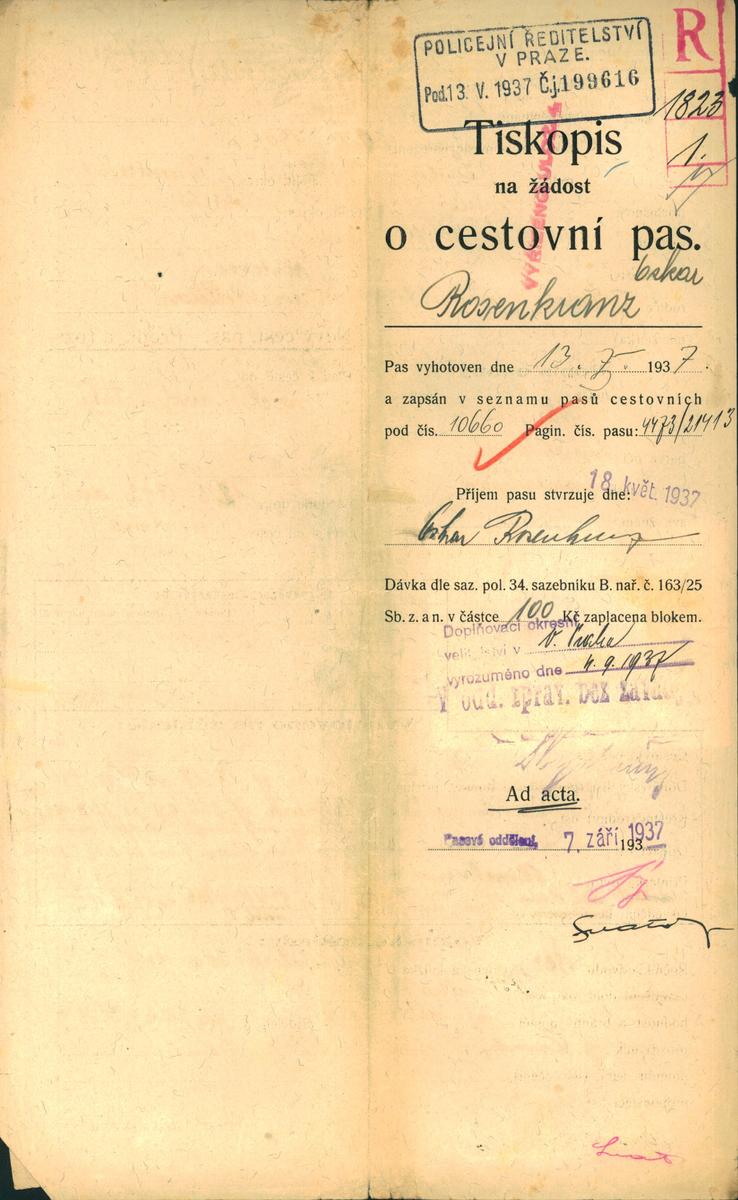 POLICEJNÍ ŘEDITELSTVÍ
V PRAZE.
Pod. 13. V. 1937 Č.j. 199616
R
1823
1.
Tiskopis
na žádost
o cestovní pas.
Oskar
Rosenkranz
Pas vyhotoven dne 13. V. 1937.
a zapsán v seznamu pasů cestovních
pod čís. 10660 Pagin. čís. pasu: 4473/21413
18. květ. 1937
Příjem pasu stvrzuje dne:
Oskar Rosenkranz
Dávka dle saz. pol. 34. sazebníku B. nař. č. 163/25
Sb. z. a n. v částce 100 Kč zaplacena blokem.
Doplňovací okresní
velitelství v Praha
vyrozuměno dne 4. 9. 1937
V odd. zprav. bez
Ad acta.
Pasové oddělení, 7. září 1937
193